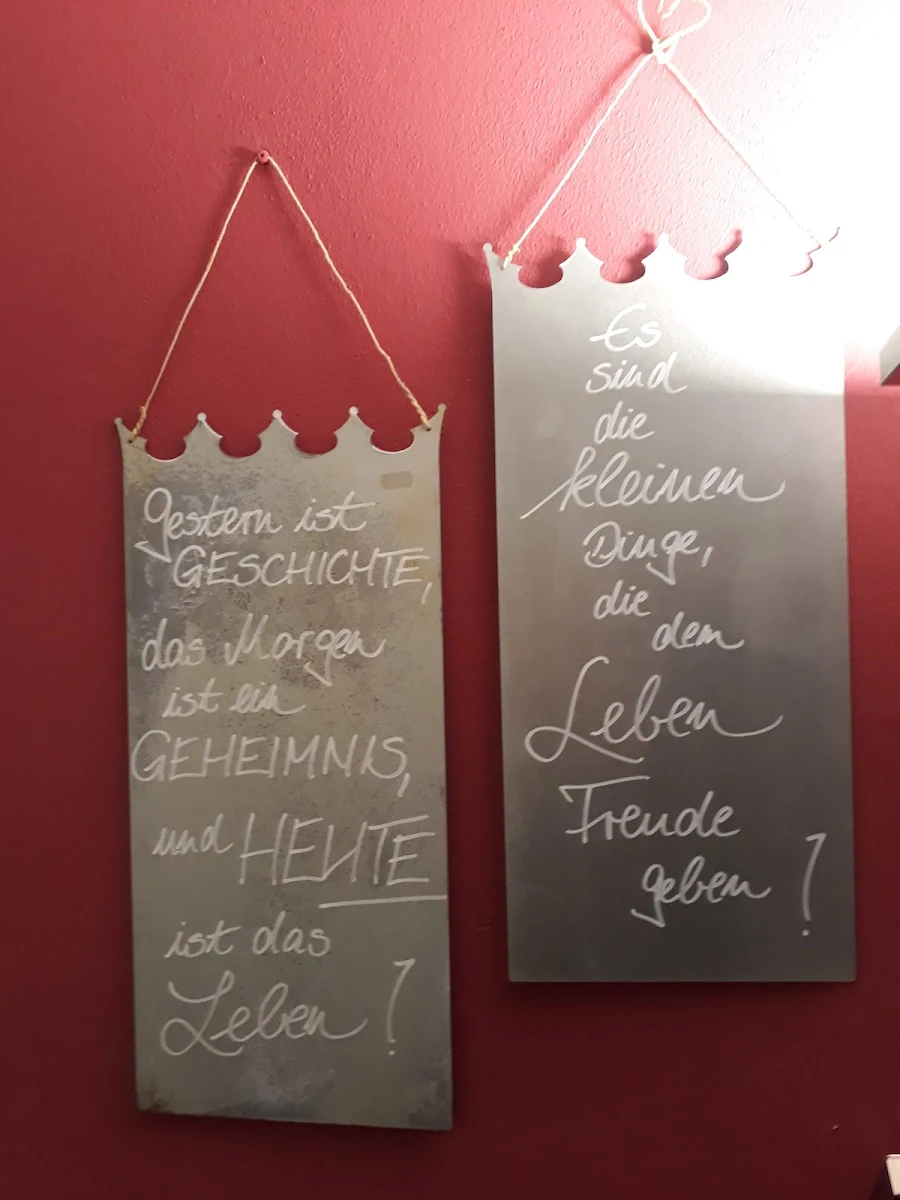 gestern ist
GESCHICHTE,
das Morgen
ist ein
GEHEIMNIS,
und HEUTE
ist das
Leben!
Es
sind
die
kleinen
Dinge,
die
dem
Leben
Freude
geben!